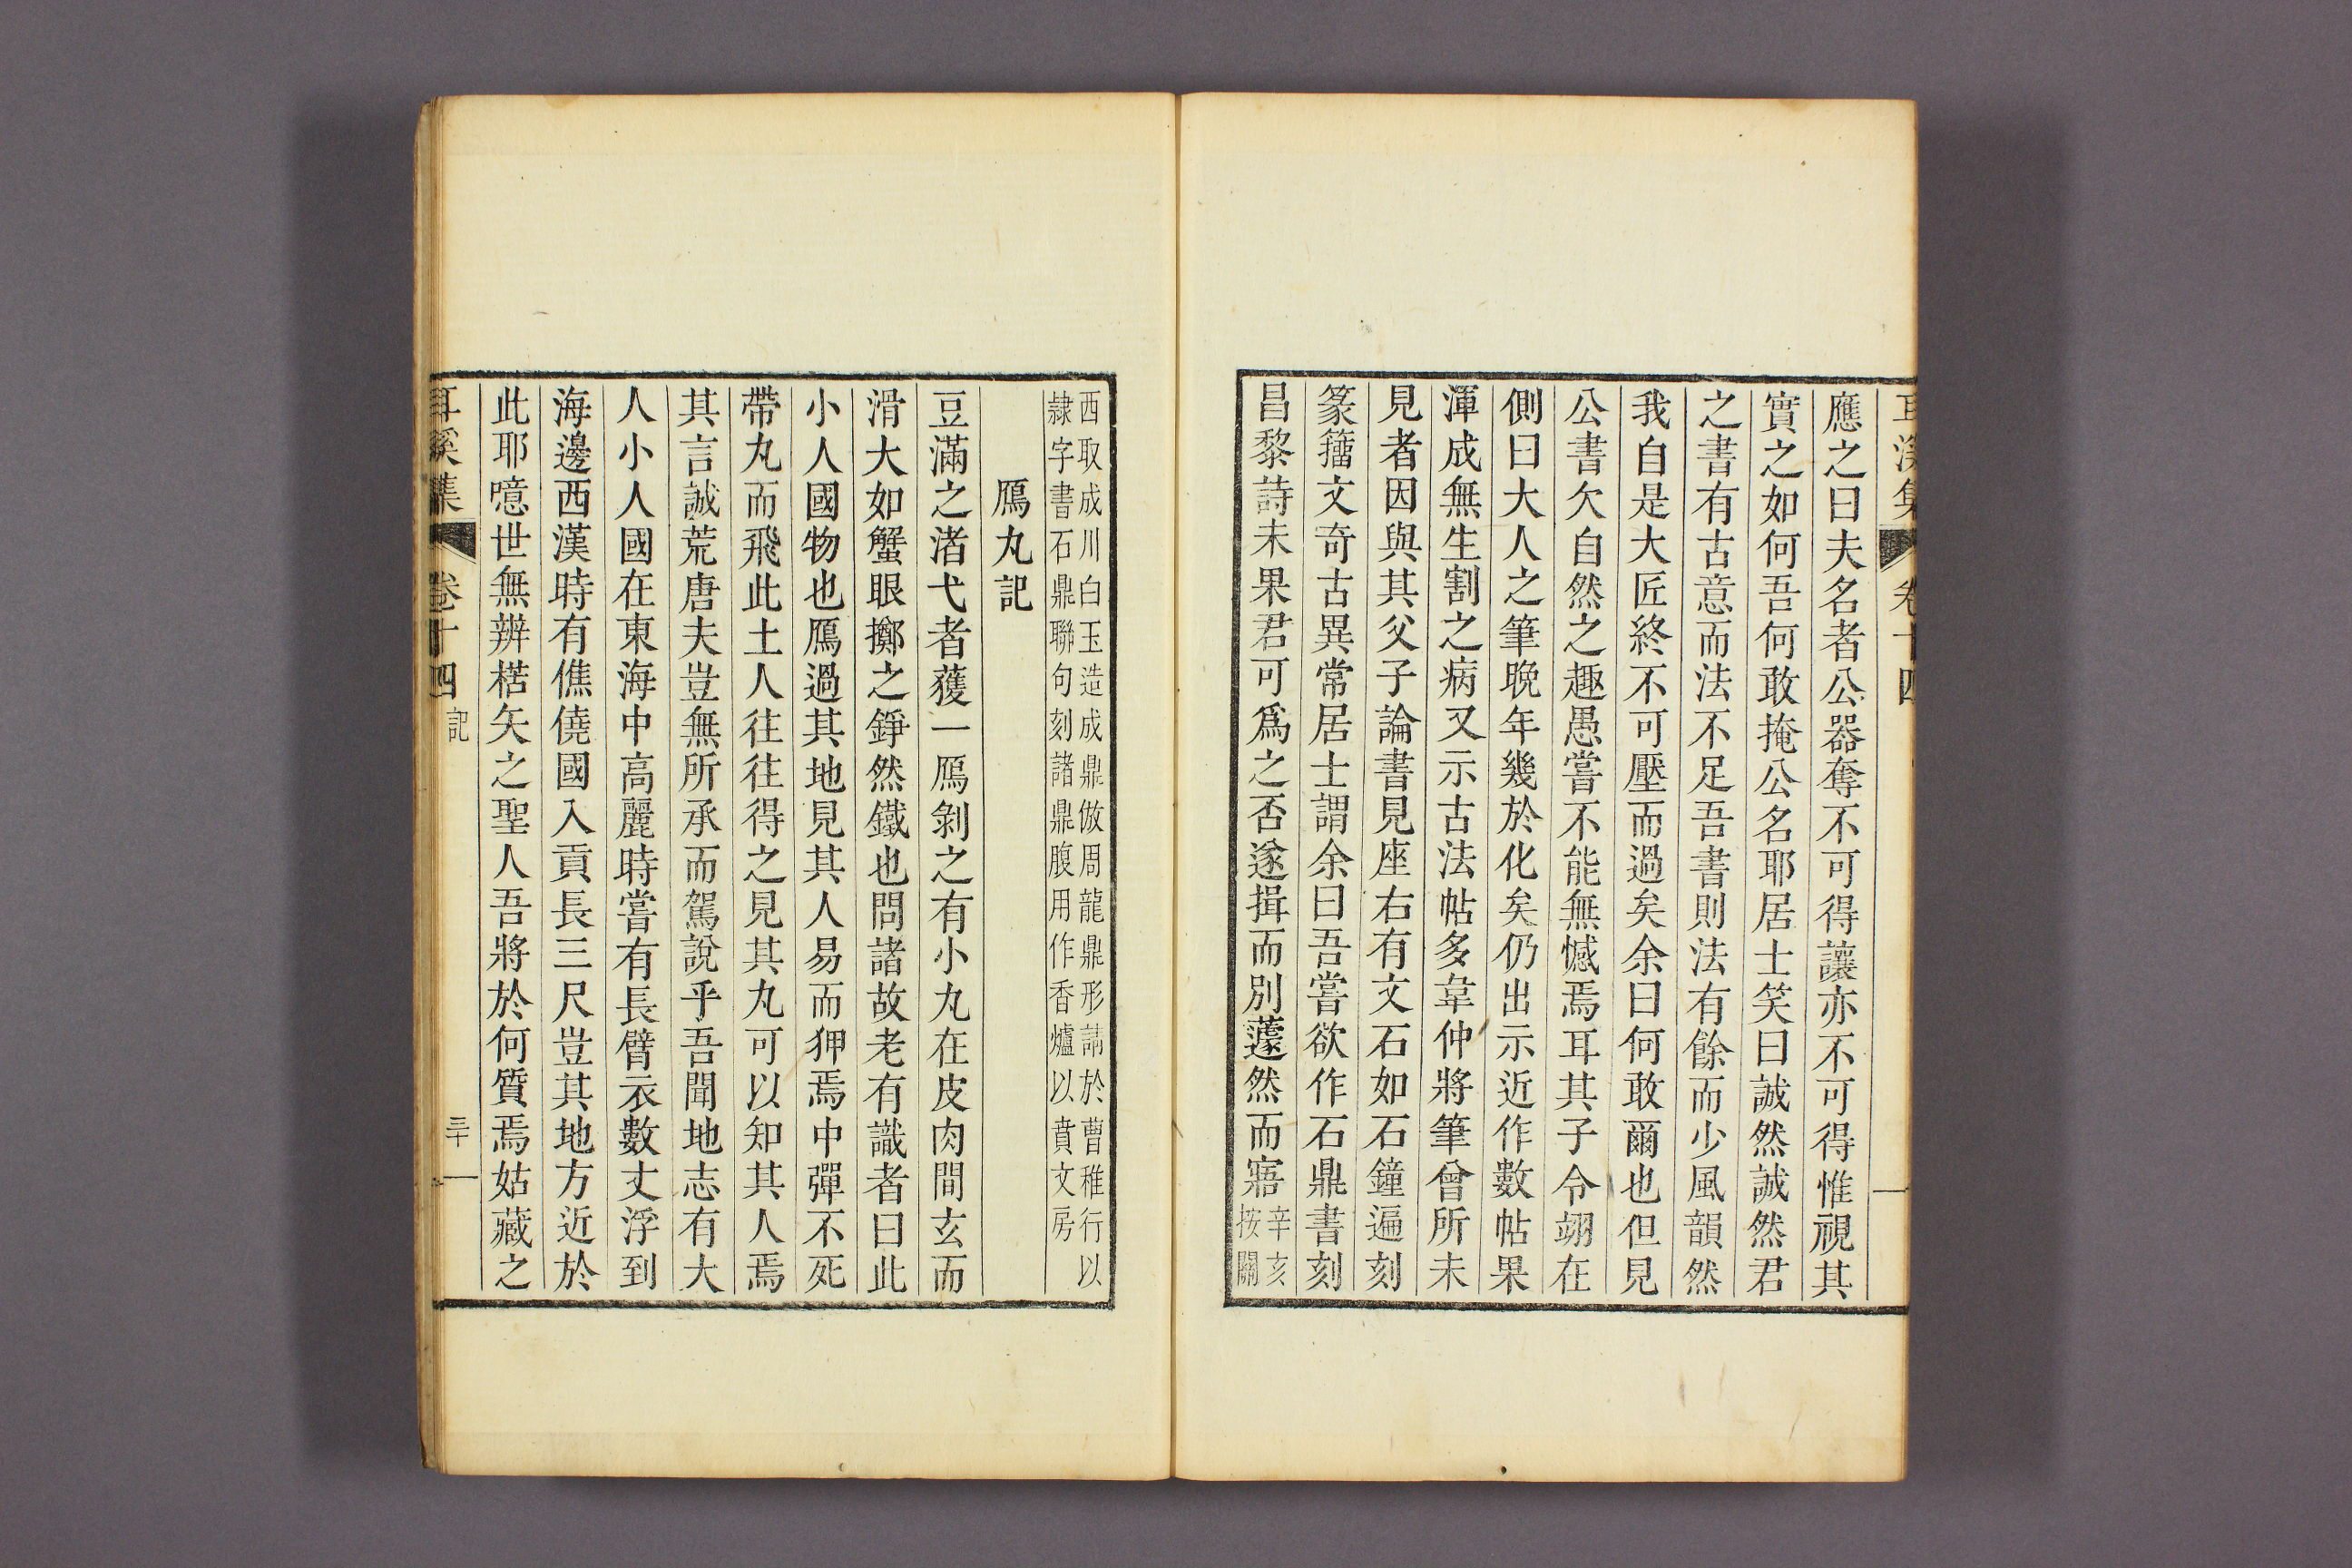 耳溪集 卷十四
應之曰夫名者公器奪不可得讓亦不可得惟視其
實之如何吾何敢掩公名耶居士笑曰誠然誠然君
之書有古意而法不足吾書則法有餘而少風韻然
我自是大匠終不可壓而過矣余曰何敢爾也但見
公書欠自然之趣愚嘗不能無憾焉耳其子令翊在
側曰大人之筆晩年幾於化矣仍出示近作數帖果
渾成無生割之病又示古法帖多韋仲將筆曾所未
見者因與其父子論書見座右有文石如石鐘遍刻
篆籒文奇古異常居士謂余曰吾嘗欲作石鼎書刻
昌黎詩未果君可爲之否遂揖而別蘧然而寤
辛亥
按關
西取成川白玉造成鼎倣周龍鼎形請於曹稚行以
隷字書石鼎聯句刻諸鼎腹用作香爐以賁文房
鴈丸記
豆滿之渚弋者獲一鴈剝之有小丸在皮肉間玄而
滑大如蟹眼擲之錚然鐵也問諸故老有識者曰此
小人國物也鴈過其地見其人易而狎焉中彈不死
帶丸而飛此土人往往得之見其丸可以知其人焉
其言誠荒唐夫豈無所承而駕說乎吾聞地志有大
人小人國在東海中高麗時嘗有長臂衣數丈浮到
海邊西漢時有僬僥國入貢長三尺豈其地方近於
此耶噫世無辨楛矢之聖人吾將於何質焉姑藏之
耳溪集 卷十四 記 三十